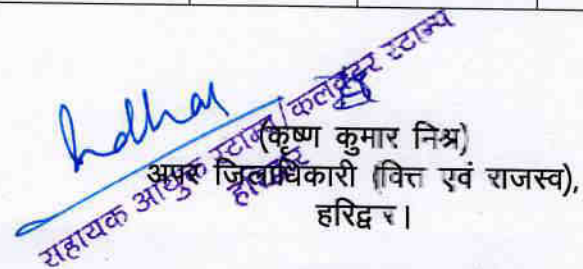 सहायक आयुक्त स्टाम्प/कलेक्टर स्टाम्प
हरिद्वार
(कृष्ण कुमार मिश्र)
अपर जिलाधिकारी (वित्त एवं राजस्व),
हरिद्वार।